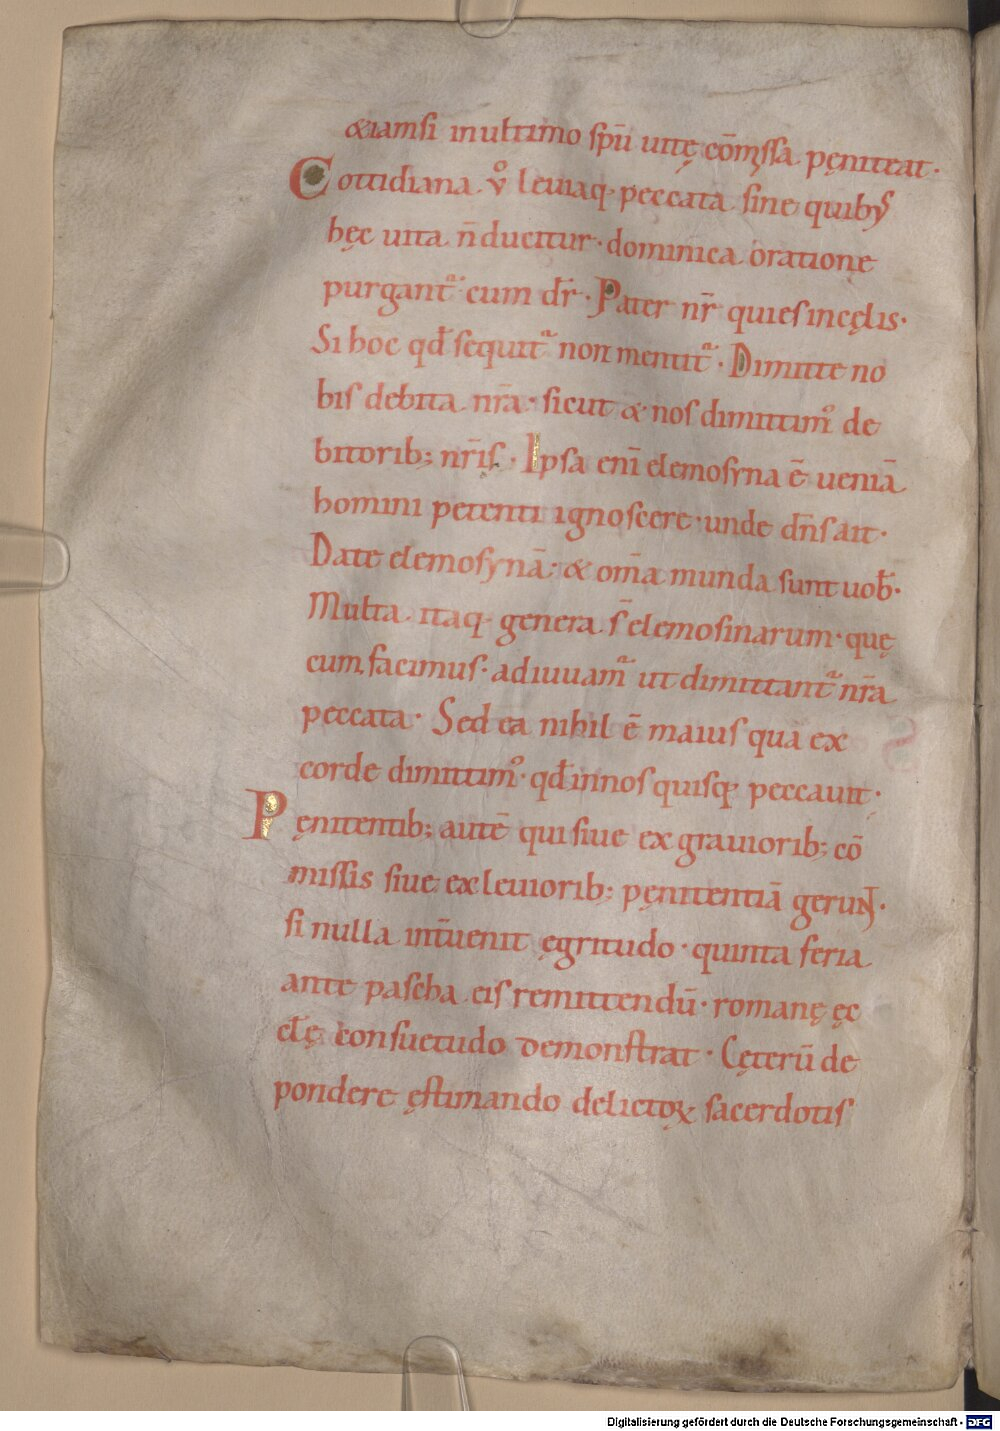 &iamsi inultimo spū uitę cōmissa pęniteat·
Cottidiana v̊ leuiaq· peccata sine quibus
hęc uita n̄ ducitur· dominica oratione
purgant᷑· cum dr̄· Pater nr̄ qui es in cęlis·
Si hoc qđ sequit᷑ non mentit᷑· Dimitte no
bis debita nr̄a· sicut & nos dimittim᷒ de
bitorib; nr̄is· Ipsa eni elemosyna ē ueniā
homini petenti ignoscere· unde dn̄s ait·
Date elemosynā· & om̄a munda sunt uob̄·
Multa itaq· genera s̄ elemosinarum· quę
cum facimus· adiuuam᷑ ut dimittant᷑ nr̄a
peccata· Sed ea nihil ē maius quā ex
corde dimittim᷒· qđ in nos quisq· peccauit·
Pęnitentib; autē qui siue ex grauiorib; cō
missis siue ex leuiorib; pęnitentiā gerunt·
si nulla int̄uenit ęgritudo· quinta feria
ante pascha eis remittendū· romanę ęc
cłę consuetudo demonstrat· Cęterū de
pondere ęstimando delictoꝝ sacerdotis
Digitalisierung gefördert durch die Deutsche Forschungsgemeinschaft - DFG